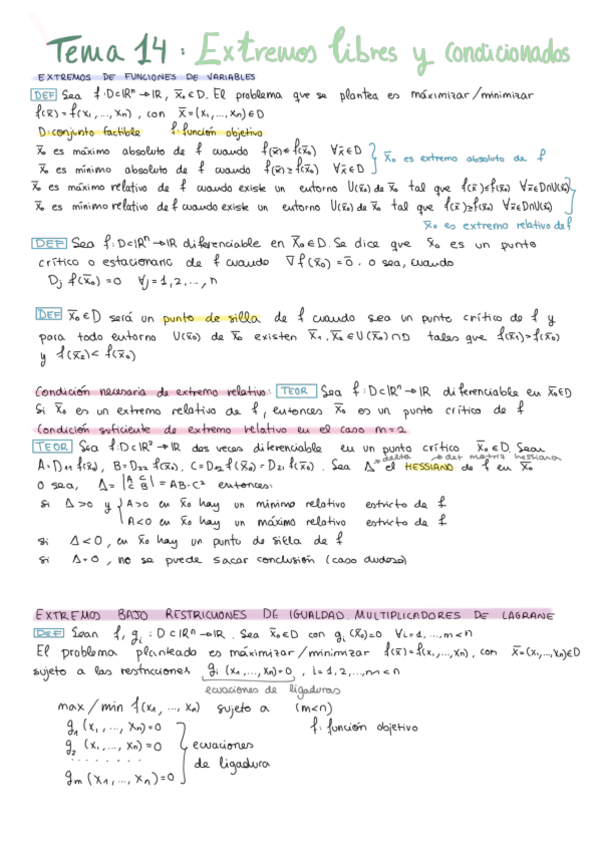 Tema 14: Extremos libres y condicionados
EXTREMOS DE FUNCIONES DE VARIABLES
DEF Sea f: D⊂ℝⁿ→ℝ, x̄₀∈D. El problema que se plantea es máximizar/minimizar
f(x̄)=f(x₁,...,xₙ), con x̄=(x₁,...,xₙ)∈D
D: conjunto factible f: función objetivo
x̄₀ es máximo absoluto de f cuando f(x̄)≤f(x̄₀) ∀x̄∈D
x̄₀ es mínimo absoluto de f cuando f(x̄)≥f(x̄₀) ∀x̄∈D
x̄₀ es extremo absoluto de f
x̄₀ es máximo relativo de f cuando existe un entorno U(x̄₀) de x̄₀ tal que f(x̄)≤f(x̄₀) ∀x̄∈D∩U(x̄₀)
x̄₀ es mínimo relativo de f cuando existe un entorno U(x̄₀) de x̄₀ tal que f(x̄)≥f(x̄₀) ∀x̄∈D∩U(x̄₀)
x̄₀ es extremo relativo de f
DEF Sea f: D⊂ℝⁿ→ℝ diferenciable en x̄₀∈D. Se dice que x̄₀ es un punto
crítico o estacionario de f cuando ∇f(x̄₀)=0̄. o sea, cuando
Dⱼ f(x̄₀)=0 ∀j=1,2,...,n
DEF x̄₀∈D será un punto de silla de f cuando sea un punto crítico de f y
para todo entorno U(x̄₀) de x̄₀ existen x̄₁, x̄₂∈U(x̄₀)∩D tales que f(x̄₁)>f(x̄₀)
y f(x̄₂)<f(x̄₀)
Condición necesaria de extremo relativo: TEOR Sea f: D⊂ℝⁿ→ℝ diferenciable en x̄₀∈D
Si x̄₀ es un extremo relativo de f, entonces x̄₀ es un punto crítico de f
Condición suficiente de extremo relativo en el caso m=2
TEOR Sea f: D⊂ℝ²→ℝ dos veces diferenciable en un punto crítico x̄₀∈D. Sean
A=D₁₁f(x̄₀), B=D₂₂f(x̄₀), C=D₁₂f(x̄₀)=D₂₁f(x̄₀). Sea Δ el HESSIANO de f en x̄₀
delta det matriz hessiana
o sea, Δ=|A C; C B|=AB-C² entonces:
si Δ>0 y A>0 en x̄₀ hay un mínimo relativo estricto de f
A<0 en x̄₀ hay un máximo relativo estricto de f
si Δ<0, en x̄₀ hay un punto de silla de f
si Δ=0, no se puede sacar conclusión (caso dudoso)
EXTREMOS BAJO RESTRICIONES DE IGUALDAD. MULTIPLICADORES DE LAGRANE
DEF Sean f, gᵢ: D⊂ℝⁿ→ℝ. Sea x̄₀∈D con gᵢ(x̄₀)=0 ∀i=1,...,m<n
El problema planteado es máximizar/minimizar f(x̄)=f(x₁,...,xₙ), con x̄=(x₁,...,xₙ)∈D
sujeto a las restricciones gᵢ(x₁,...,xₙ)=0, i=1,2,...,m<n
ecuaciones de ligaduras
max/min f(x₁,...,xₙ) sujeto a (m<n)
g₁(x₁,...,xₙ)=0 f: función objetivo
g₂(x₁,...,xₙ)=0 ecuaciones
........ de ligadura
gₘ(x₁,...,xₙ)=0